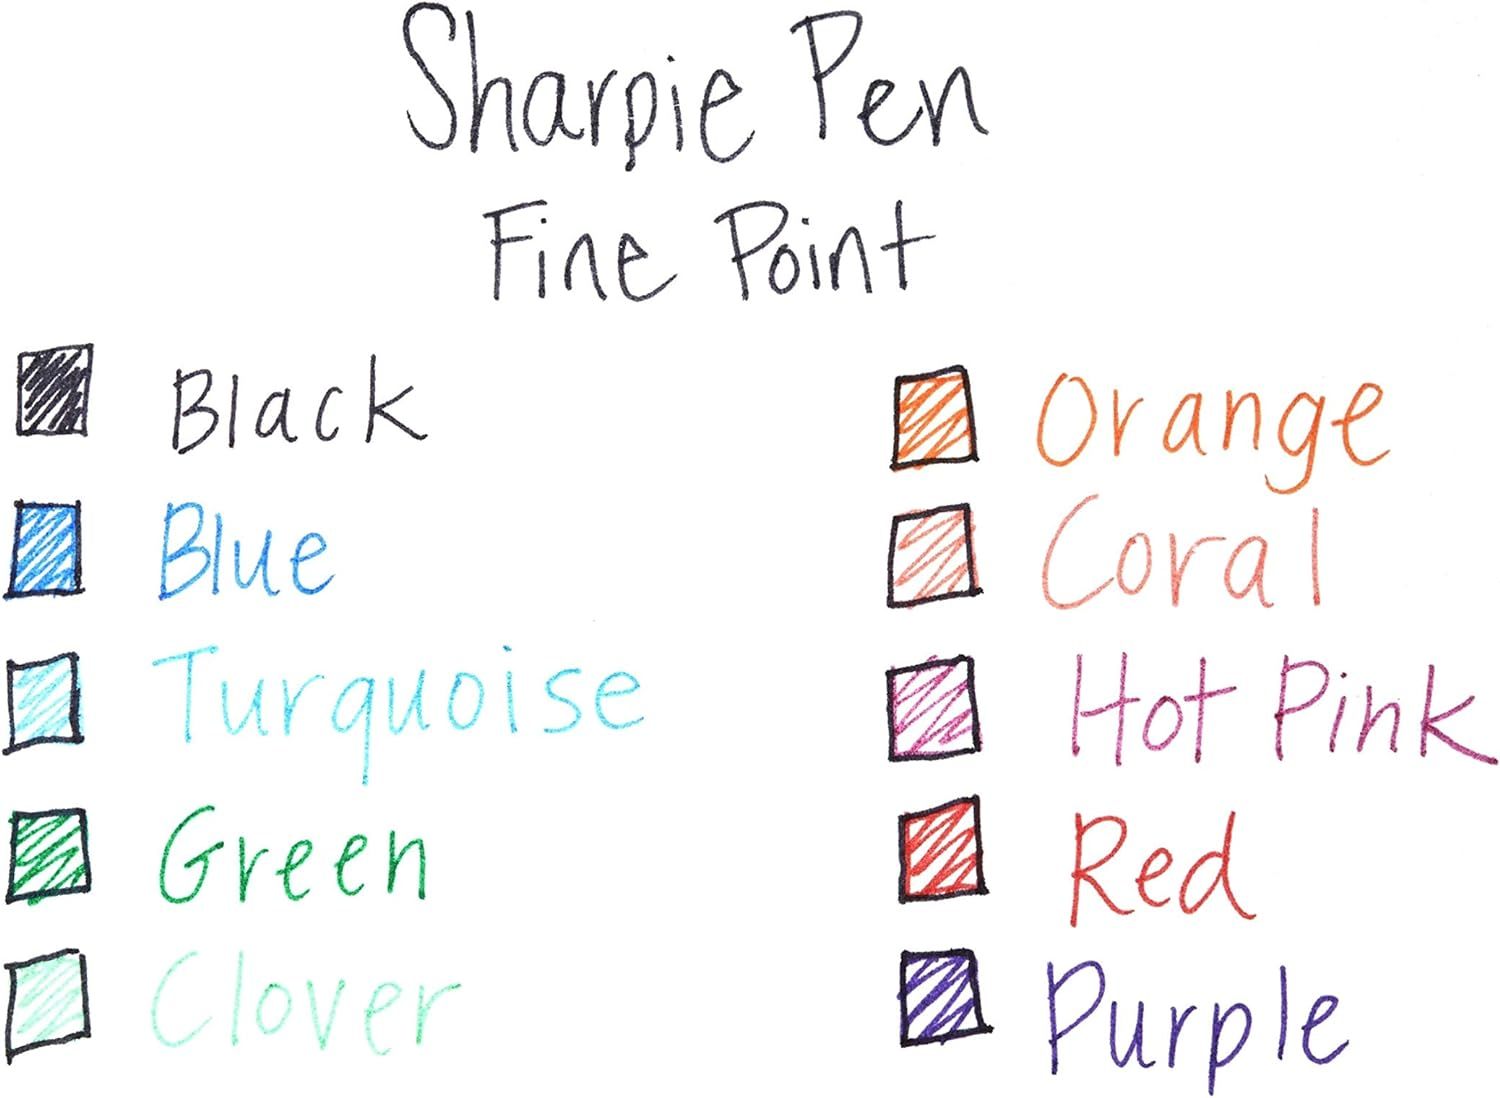 Sharpie Pen
Fine Point
Black
Blue
Turquoise
Green
Clover
Orange
Coral
Hot Pink
Red
Purple